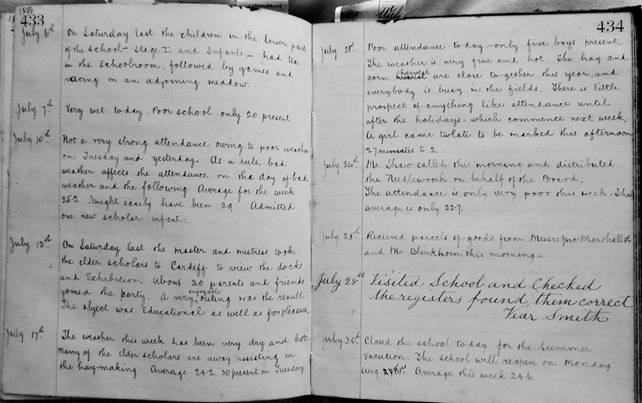 1896
433
July 6th On Saturday last the children in the lower part
of the school - Stage I and Infants - had tea
in the schoolroom, followed by games and
racing in an adjoining meadow.
July 7th Very wet today. Poor school only 20 present
July 10th Not a very strong attendance owing to poor weather
on Tuesday and yesterday. As a rule, bad
weather affects the attendance on the day of bad
weather and the following. Average for the week
25.2. Might easily have been 29. Admitted
one new scholar infant.
July 13th On Saturday last the master and mistress took
the elder scholars to Cardiff to view the docks
and Exhibition. About 30 parents and friends
joined the party. A very enjoyable outing was the result.
The object was Educational as well as for pleasure.
July 17th The weather this week has been very dry and hot
Many of the elder scholars are away assisting in
the hay-making. Average 24.2. 30 present on Tuesday
434
July 21st Poor attendance today - only five boys present.
The weather is very fine and hot. The hay and
corn harvest are close together this year, and
everybody is busy in the fields. There is little
prospect of anything like attendance until
after the holidays - which commence next week.
A girl came too late to be marked this afternoon
27 minutes to 2.
July 24th Mr Shaw called this morning and distributed
the Needlework on behalf of the Board.
The attendance is only very poor this week. This
average is only 22.7.
July 28th Received parcels of goods from Messrs Marshall
and Mr Blinkhorn this morning.
July 28th Visited School and Checked
the registers found them correct
Vear Smith
July 30th Closed the school today for the Summer
Vacation. The school will reopen on Monday
Aug Average this week 24.6.